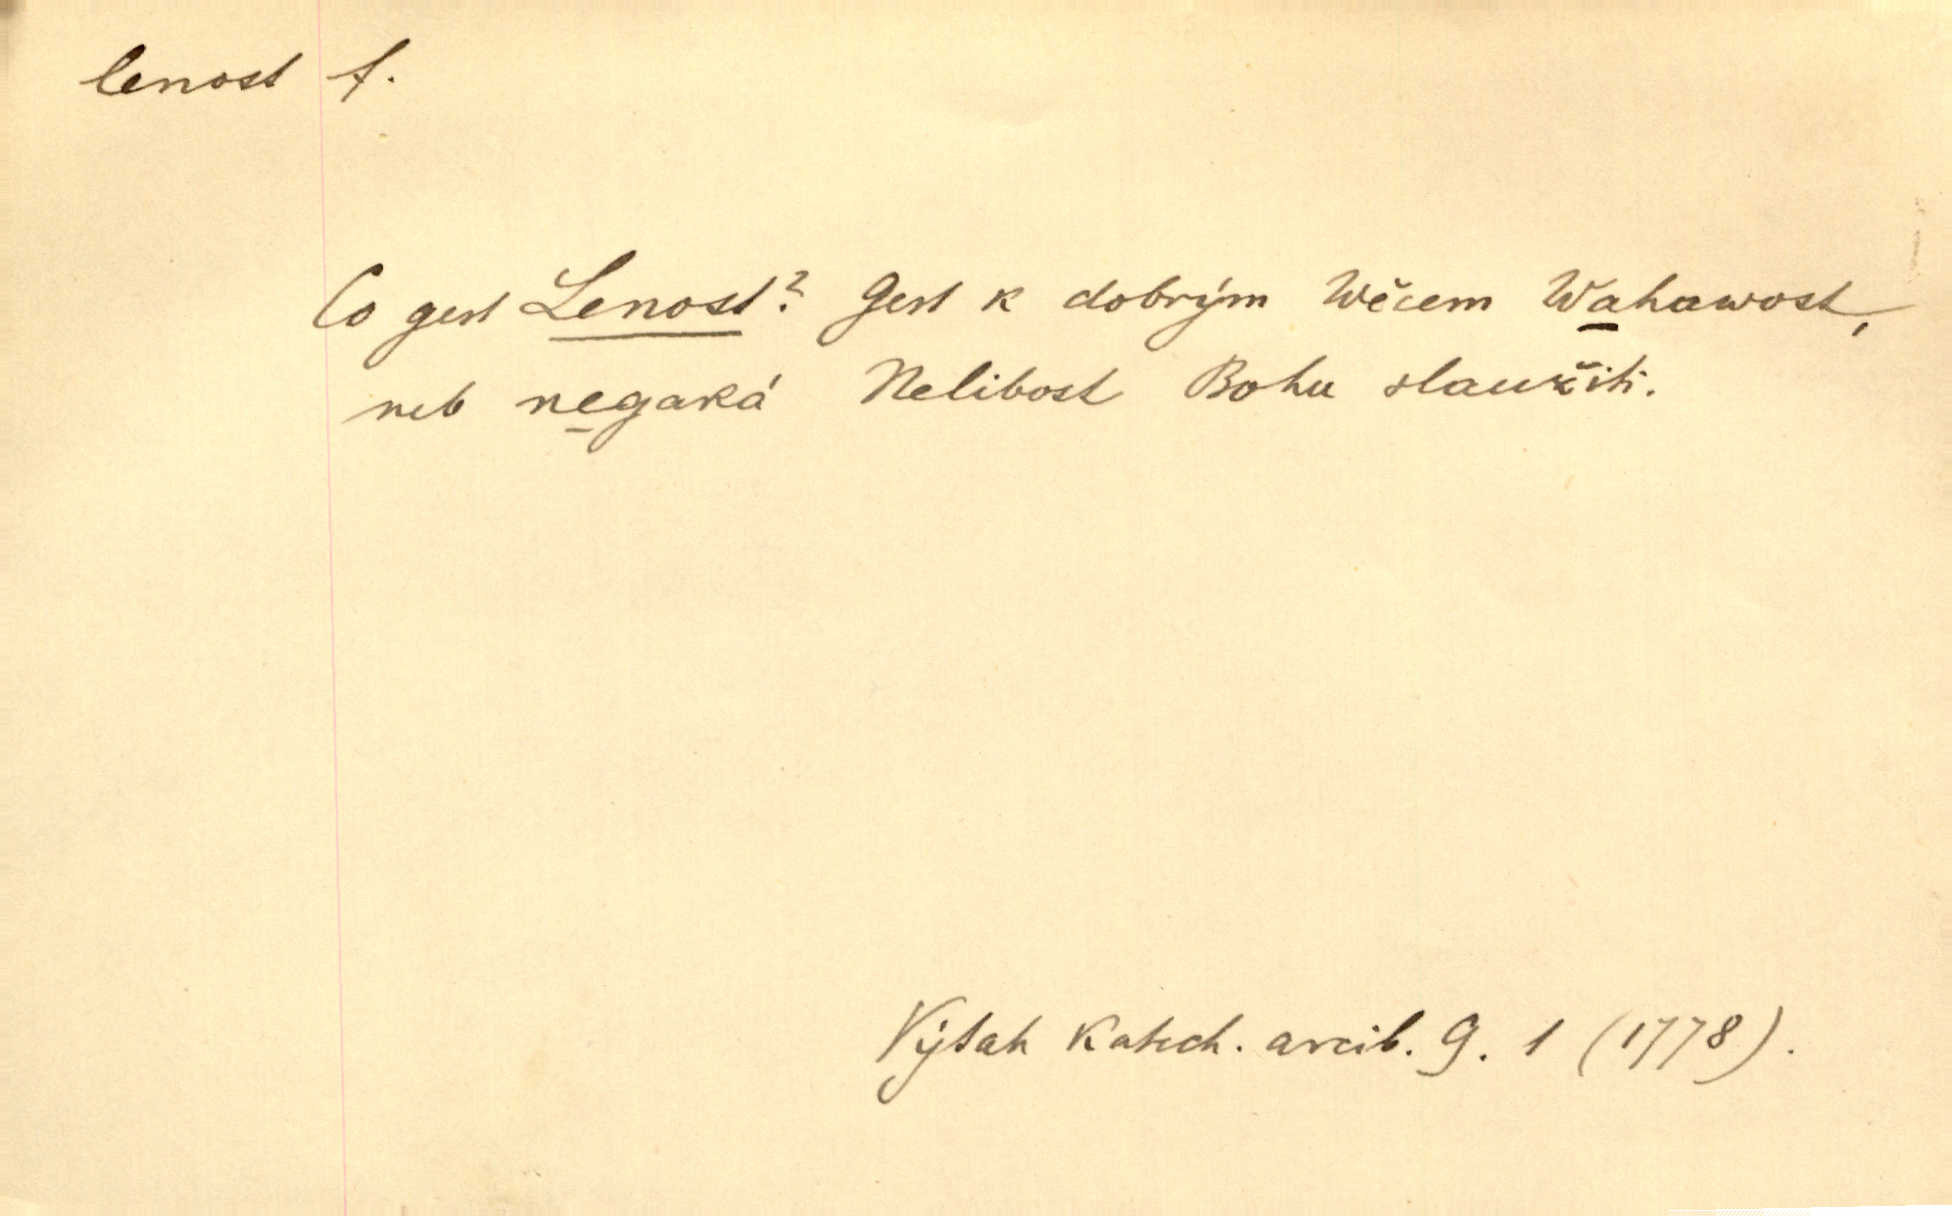 lenost f.
Co gest Lenost? Gest k dobrým Wěcem Wahawost,
neb negaká Nelibost Bohu slaužiti.
Výtah Katech. arcib. G. 1 (1778).